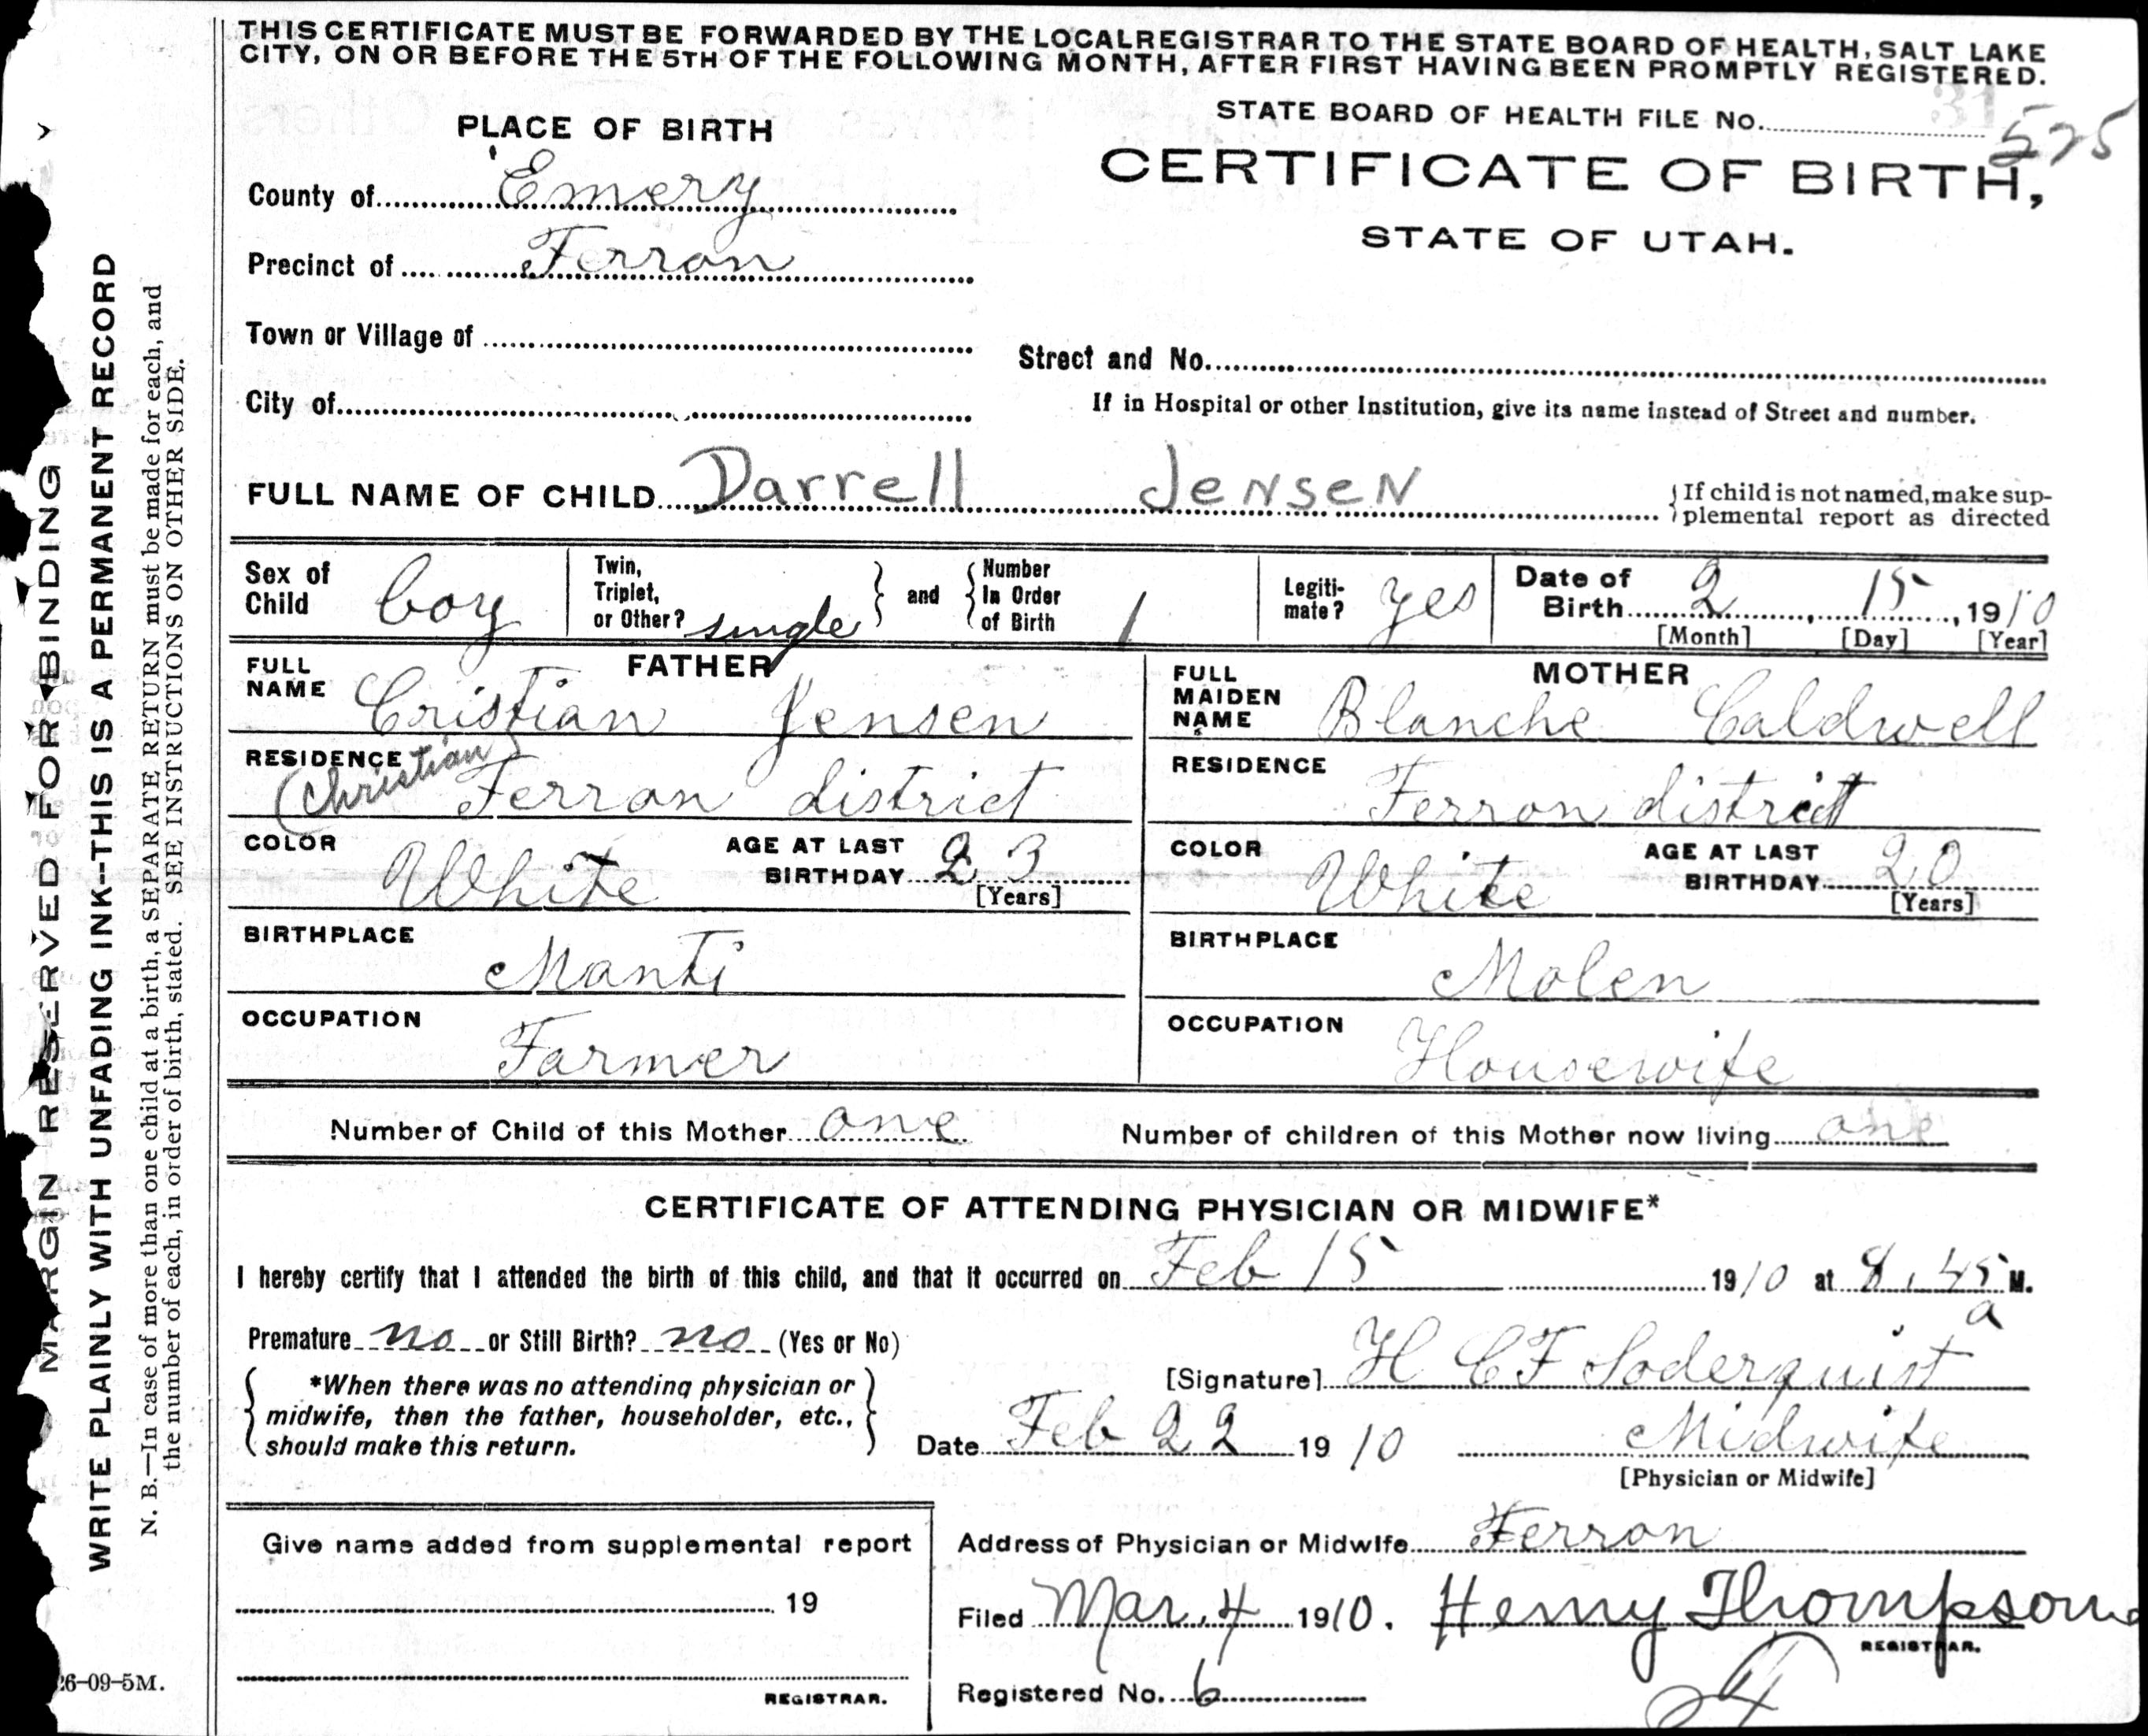 THIS CERTIFICATE MUST BE FORWARDED BY THE LOCAL REGISTRAR TO THE STATE BOARD OF HEALTH, SALT LAKE
CITY, ON OR BEFORE THE 5TH OF THE FOLLOWING MONTH, AFTER FIRST HAVING BEEN PROMPTLY REGISTERED.
STATE BOARD OF HEALTH FILE No. 31
525
PLACE OF BIRTH
CERTIFICATE OF BIRTH,
STATE OF UTAH.
County of Emery
Precinct of Ferron
Town or Village of
Street and No.
City of
If in Hospital or other Institution, give its name instead of Street and number.
FULL NAME OF CHILD Darrell Jensen
If child is not named, make sup-
plemental report as directed
Sex of Child boy
Twin, Triplet, or Other? single
and
Number In Order of Birth 1
Legiti-mate? yes
Date of Birth 2, 15, 1910
[Month] [Day] [Year]
FATHER
FULL NAME Cristian Jensen
(Christian)
RESIDENCE Ferron district
COLOR White
AGE AT LAST BIRTHDAY 23
[Years]
BIRTHPLACE Manti
OCCUPATION Farmer
MOTHER
FULL MAIDEN NAME Blanche Caldwell
RESIDENCE Ferron district
COLOR White
AGE AT LAST BIRTHDAY 20
[Years]
BIRTHPLACE Molen
OCCUPATION Housewife
Number of Child of this Mother one
Number of children of this Mother now living one
CERTIFICATE OF ATTENDING PHYSICIAN OR MIDWIFE*
I hereby certify that I attended the birth of this child, and that it occurred on Feb 15 1910 at 8.45 a M.
Premature no or Still Birth? no (Yes or No)
*When there was no attending physician or
midwife, then the father, householder, etc.,
should make this return.
[Signature] H C F Soderquist
Date Feb 22 1910
Midwife
[Physician or Midwife]
Give name added from supplemental report
19
REGISTRAR.
Address of Physician or Midwife Ferron
Filed Mar. 4 1910. Henry Thompson
REGISTRAR.
Registered No. 6
MARGIN RESERVED FOR BINDING
WRITE PLAINLY WITH UNFADING INK--THIS IS A PERMANENT RECORD
N. B.—In case of more than one child at a birth, a SEPARATE RETURN must be made for each, and
the number of each, in order of birth, stated. SEE INSTRUCTIONS ON OTHER SIDE.
26-09-5M.